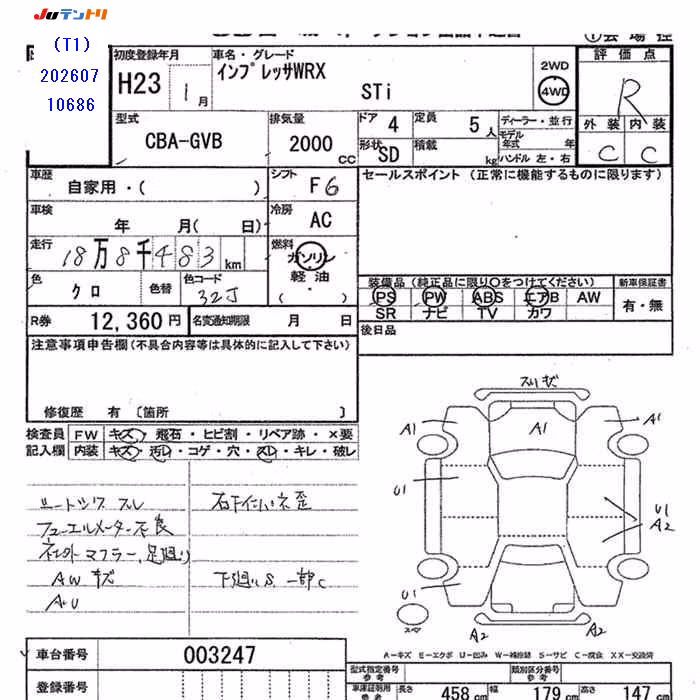 JUテントリ
(T1)
202607
10686
初度登録年月
H23
1月
車名・グレード
インプレッサWRX
STi
2WD
4WD
評価点
R
外装 内装
C C
型式
CBA-GVB
排気量
2000
CC
ドア 4
定員 5人
形状 SD
積載 kg
ディーラー・並行
モデル
年式 年
ハンドル 左・右
車歴
自家用・( )
シフト
F6
セールスポイント (正常に機能するものに限ります)
車検
年 月( 日)
冷房
AC
走行
18万8千483km
燃料
ガソリン
軽油
( ・ )
色
クロ
色替
色コード
32J
装備品 (純正品に限り○をつけてください)
新車保証書
PS PW ABS エアB AW
SR ナビ TV カワ
有・無
R券 12,360円
名変通知期限 月 日
後日品
注意事項申告欄(不具合内容等は具体的に記入して下さい)
修復歴 有 〔箇所 〕
検査員
記入欄
FW キズ・飛石・ヒビ割・リペア跡・×要
内装 キズ・汚レ・コゲ・穴・スレ・キレ・破レ
シートシワ スレ
フューエルメーター不良
社外マフラー、足廻り
AWキズ
AU
下廻りS 一部C
スリキズ
A1
A1
A1
U1
U1
A2
U1
A2
A2
スペア
A-キズ E-エクボ U-凹み W-補修跡 S-サビ C-腐食 XX-交換済
車台番号
003247
登録番号
型式指定番号
参考
類別区分番号
参考
車庫証明用
参考
長さ 458 cm
幅 179 cm
高さ 147 cm